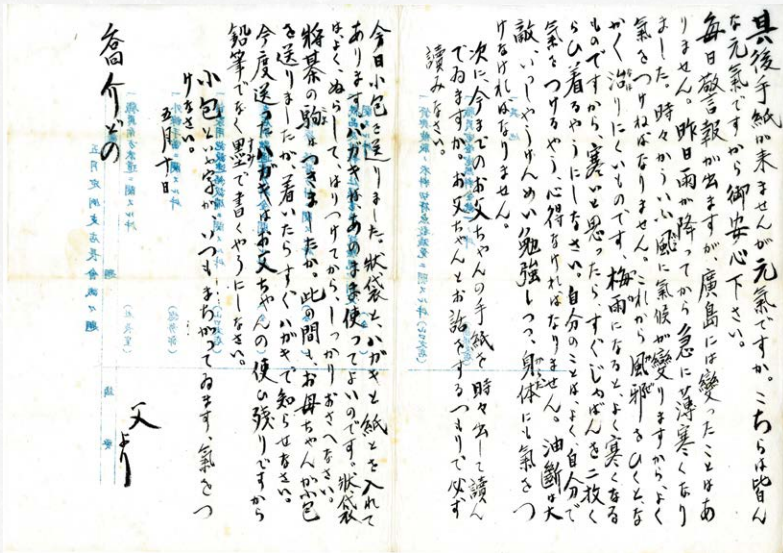 其後手紙が来ませんが元氣ですか。こちらは皆ん
な元氣ですから御安心下さい。
毎日警報が出ますが廣島には變ったことはあ
りません。昨日雨が降ってから急に薄寒くなり
ました。時々かういふ風に氣候が變りますからよく
氣をつけねばなりません。これから風邪をひくとな
かく治りにくいものです、梅雨になると、よく寒くなる
ものですから、寒いと思ったらすぐじゅばんを二枚く
らひ着るやうにしなさい。自分のことは、よく、自分で
氣をつけるやう心得なければなりません。油斷は大
敵、いっしゃうけんめい勉強しつつ、身体にも氣をつ
けなければなりません。
次に、今までのお父ちゃんの手紙を時々出して讀ん
でゐますか。お父ちゃんとお話をするつもりで必ず
讀みなさい。
今日小包を送りました。状袋と、ハガキと紙とを入れて
あります、ハガキはあのまま使ってよいのです。状袋
は、よく、ぬらして、はりつけてからしっかりおさへなさい。
将棊の駒はつきましたか。此の間も、お母ちゃんが小包
を送りましたが、着いたらすぐハガキで知らせなさい。
今度送ったハガキはお父ちゃんの使ひ殘りですから
鉛筆でなく墨で書くやうにしなさい。
小包といふ字が、いつもまちがってゐます、氣をつ
けなさい。
五月十日
父より
喬介どの